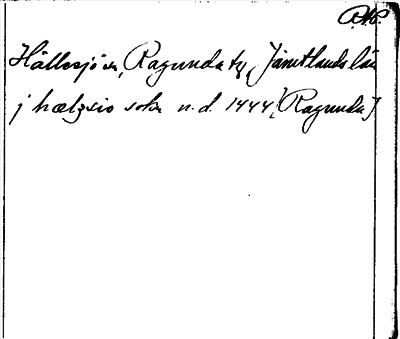 R.A.P.
Hällesjö sn, Ragunda tg, Jämtlands län
j hælgxio sokn u.d. 1444 [Ragunda]